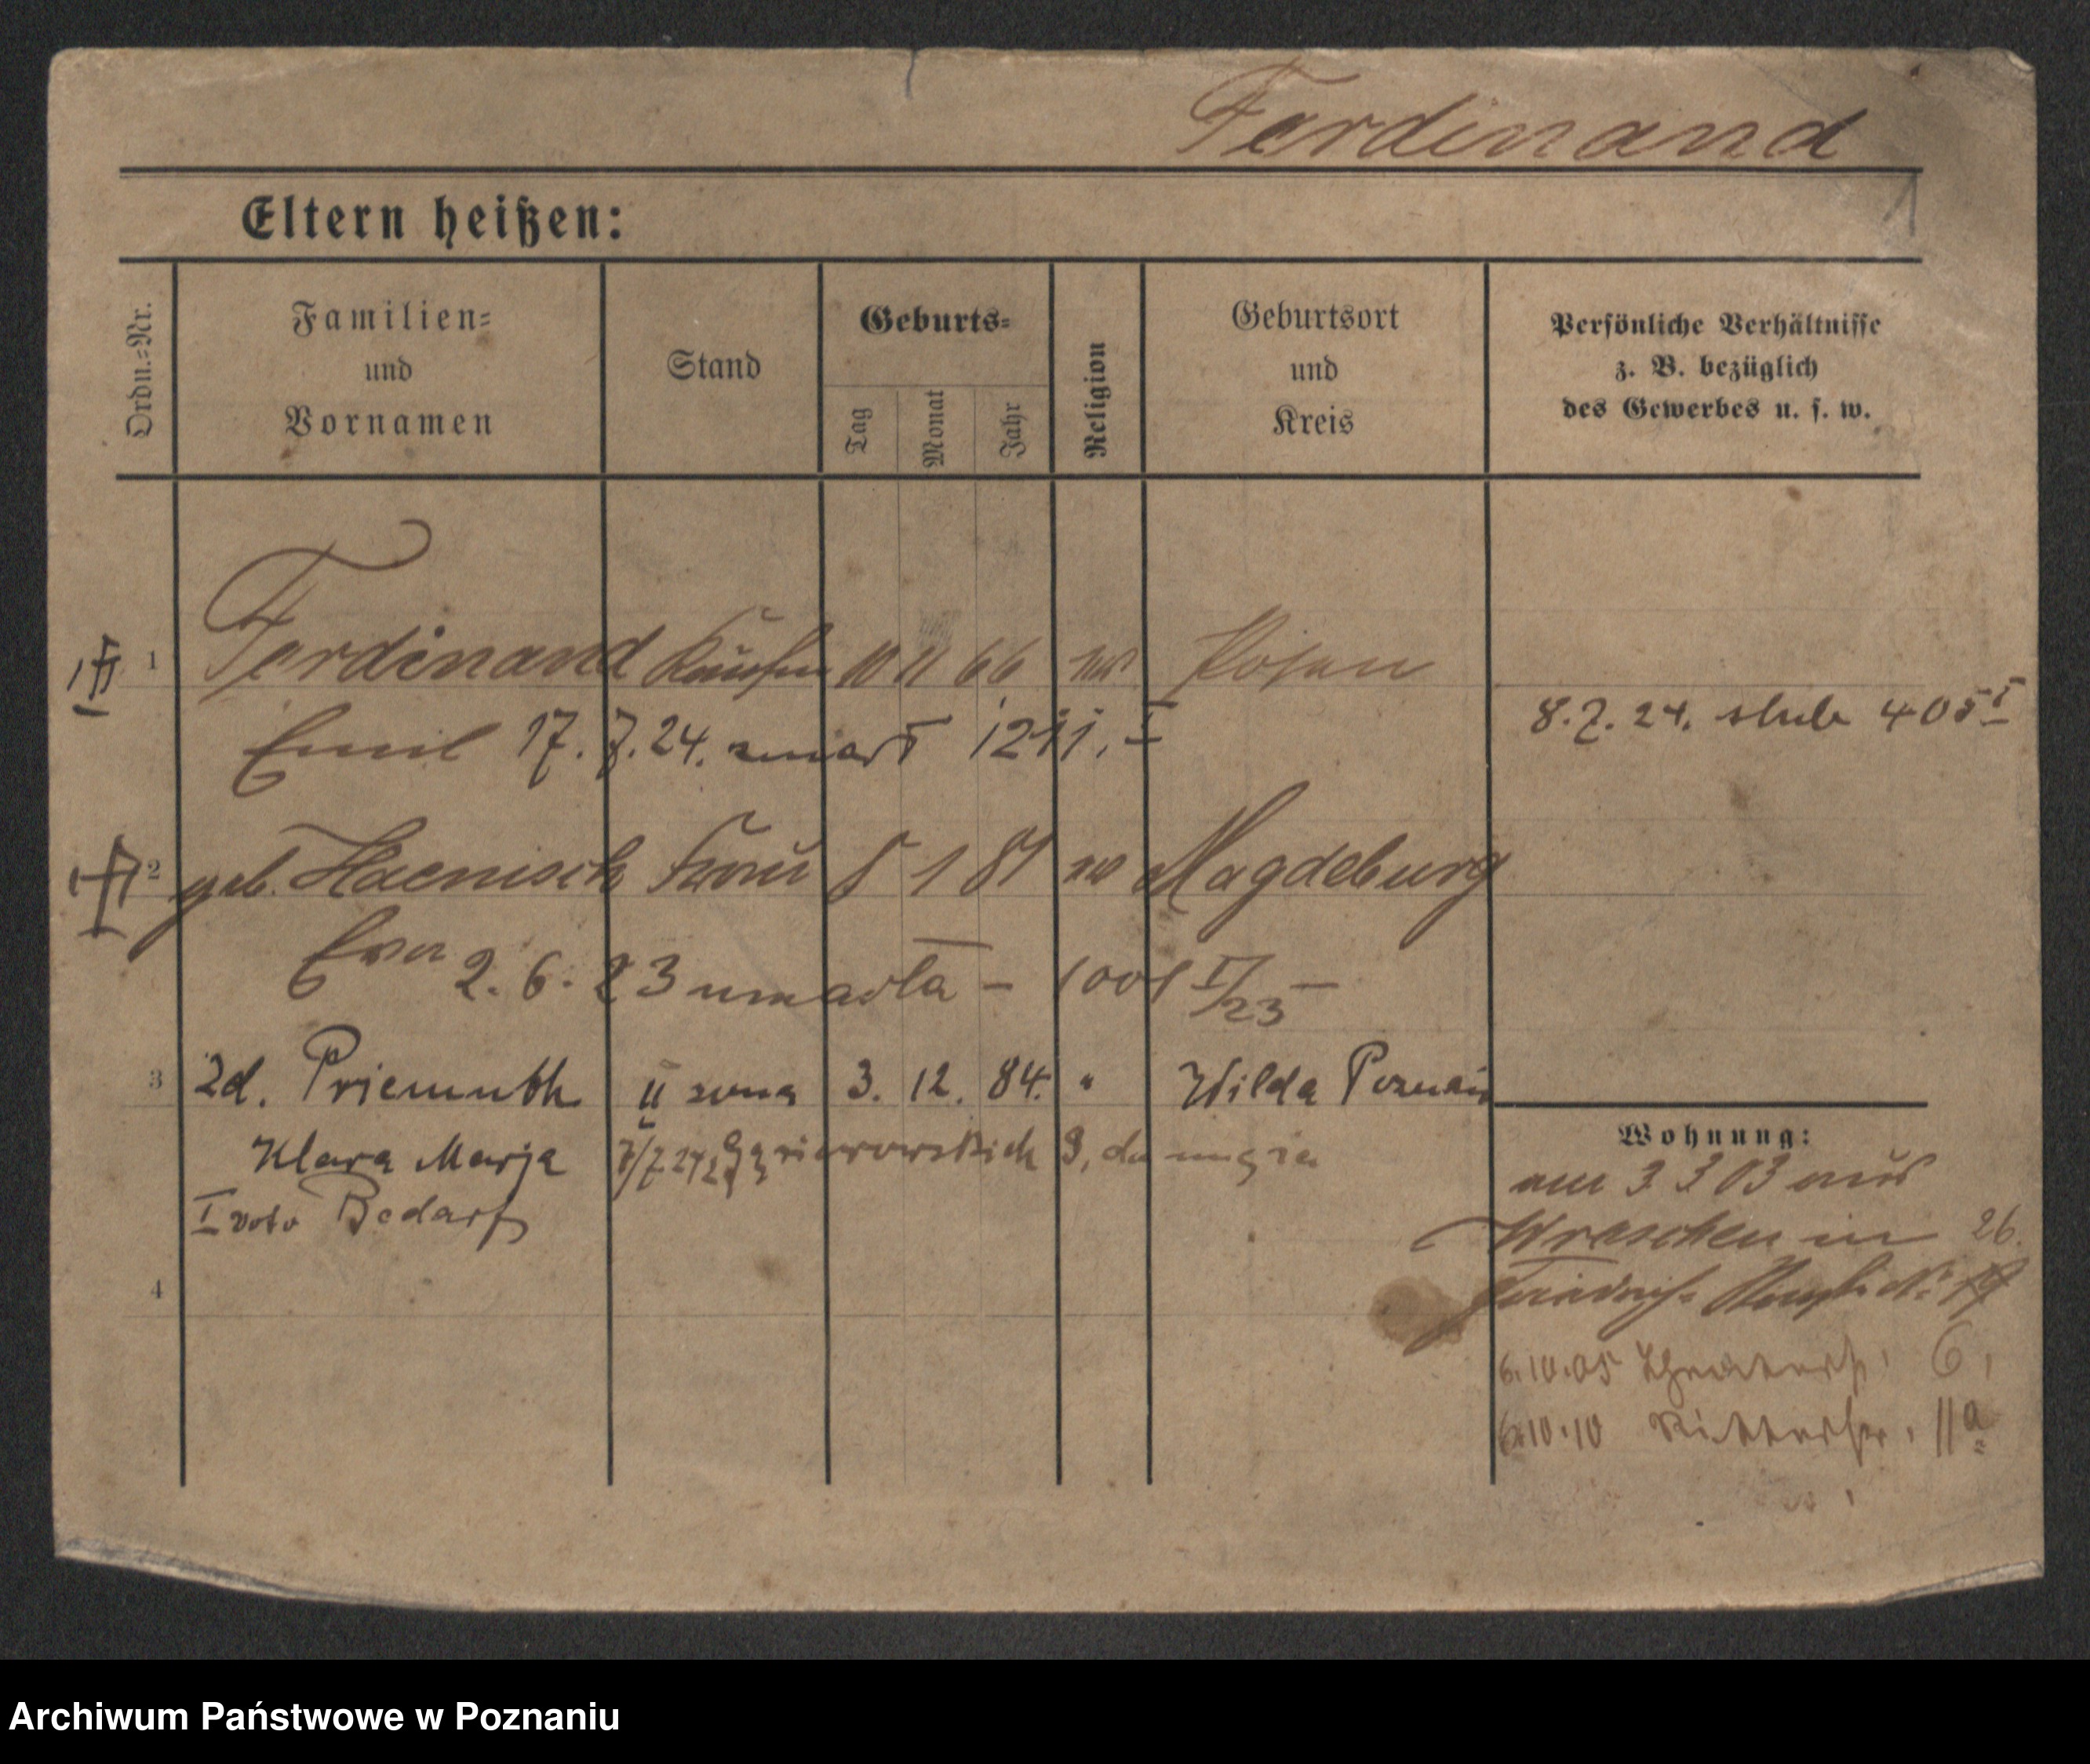 Ferdinand
1
Eltern heißen:
Ordn.=Nr.
Familien=
und
Vornamen
Stand
Geburts=
Tag
Monat
Jahr
Religion
Geburtsort
und
Kreis
Persönliche Verhältnisse
z. B. bezüglich
des Gewerbes u. s. w.
1 Ferdinand Kaufm 10 11 66 Posen
8. 7. 24. slub 405 I
Emil 17. 7. 24. zmarł 1211. I
2 geb. Haenisch Frau 8 1 81 Magdeburg
Eva 2. 6. 23 umarła – 1001 I/23 –
3 2d. Priemuth II zona 3. 12. 84. " Wilda Poznań
Wohnung:
Klara Marja 7/7 24 9,
am 3 3 03 aus
I voto Bedarf
Wreschen in 26.
4
6.10.05 Theaterstr. 6,
6.10.10 Ritterstr. 11a
Archiwum Państwowe w Poznaniu